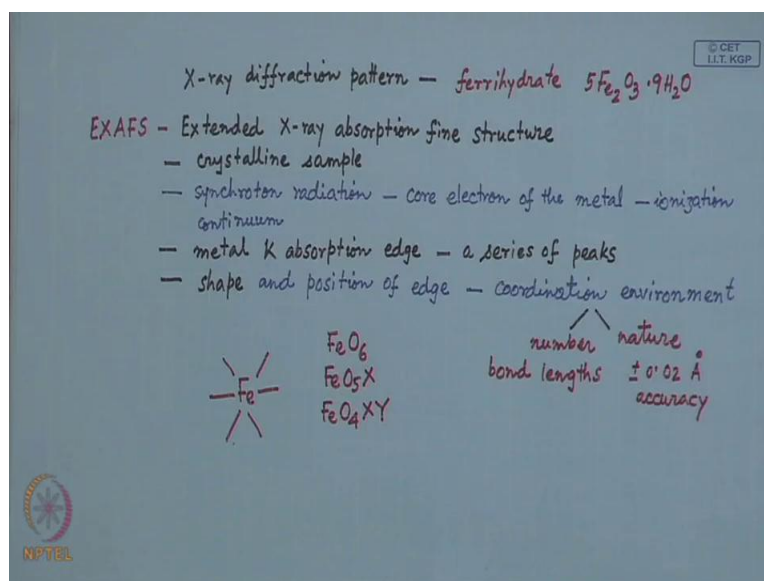 © CET
I.I.T. KGP
X-ray diffraction pattern — ferrihydrate 5Fe₂O₃·9H₂O
EXAFS - Extended X-ray absorption fine structure
— crystalline sample
— synchroton radiation — core electron of the metal — ionization
continuum
— metal K absorption edge — a series of peaks
— shape and position of edge — coordination environment
number nature
bond lengths ± 0.02 Å
accuracy
Fe
FeO₆
FeO₅X
FeO₄XY
NPTEL